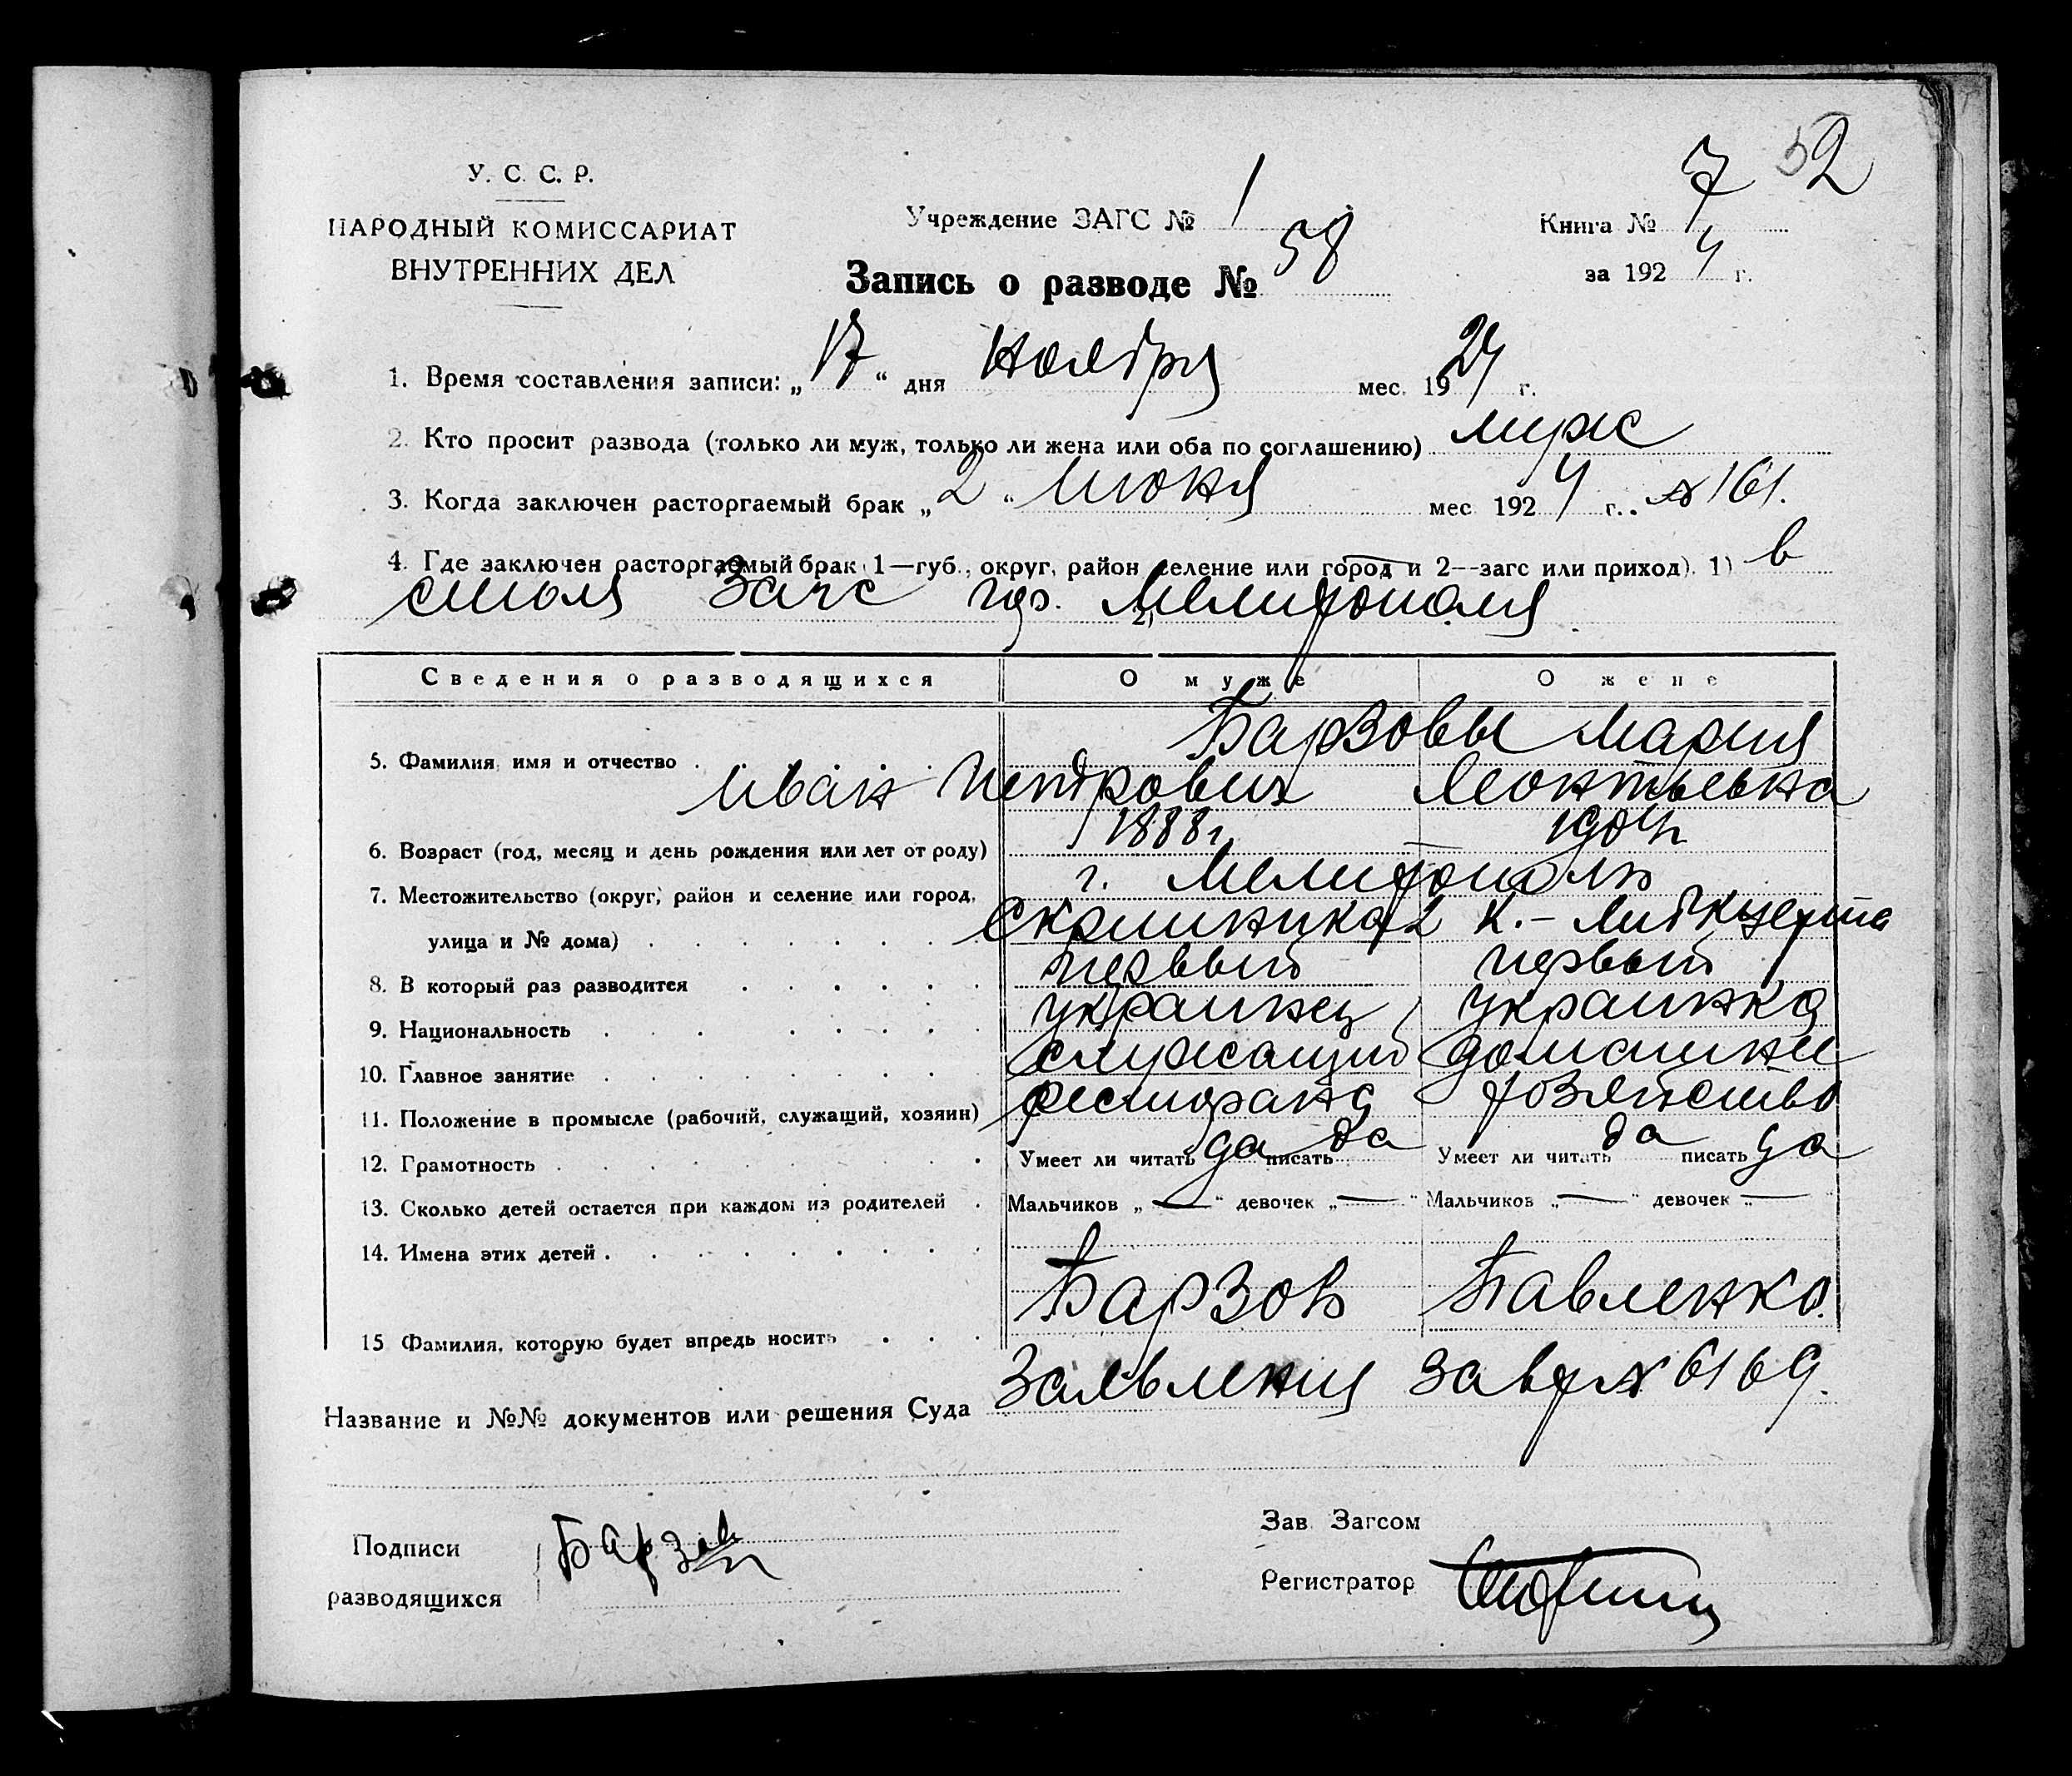 52
У. С. С. Р.
НАРОДНЫЙ КОМИССАРИАТ
ВНУТРЕННИХ ДЕЛ
Учреждение ЗАГС № 1
Книга № 7
за 1924 г.
Запись о разводе № 58
1. Время составления записи: „17“ дня Ноября мес. 1924 г.
2. Кто просит развода (только ли муж, только ли жена или оба по соглашению) муж
3. Когда заключен расторгаемый брак „2“ Июня мес 1924 г. № 161.
4. Где заключен расторгаемый брак (1—губ., округ, район селение или город и 2—загс или приход). 1) в
столе Загс гор. 2) Мелитополя
Сведения о разводящихся О муже О жене
5. Фамилия, имя и отчество Барзовы Мария
Иван Петрович Леонтьевна
6. Возраст (год, месяц и день рождения или лет от роду) 1888г. 1904г
7. Местожительство (округ, район и селение или город, г. Мелитополь
улица и № дома) К.-Либкнехта
8. В который раз разводится первый первый
9. Национальность украинец украинка
10. Главное занятие служащий домашнее
11. Положение в промысле (рабочий, служащий, хозяин) ресторана хозяйство
12. Грамотность Умеет ли читать да писать да Умеет ли читать да писать да
13. Сколько детей остается при каждом из родителей Мальчиков „—“ девочек „—“ Мальчиков „—“ девочек „—“
14. Имена этих детей
15 Фамилия, которую будет впредь носить Барзов Павленко.
Название и №№ документов или решения Суда Заявления за вх № 6169.
Подписи
разводящихся
Барзов
Зав. Загсом
Регистратор